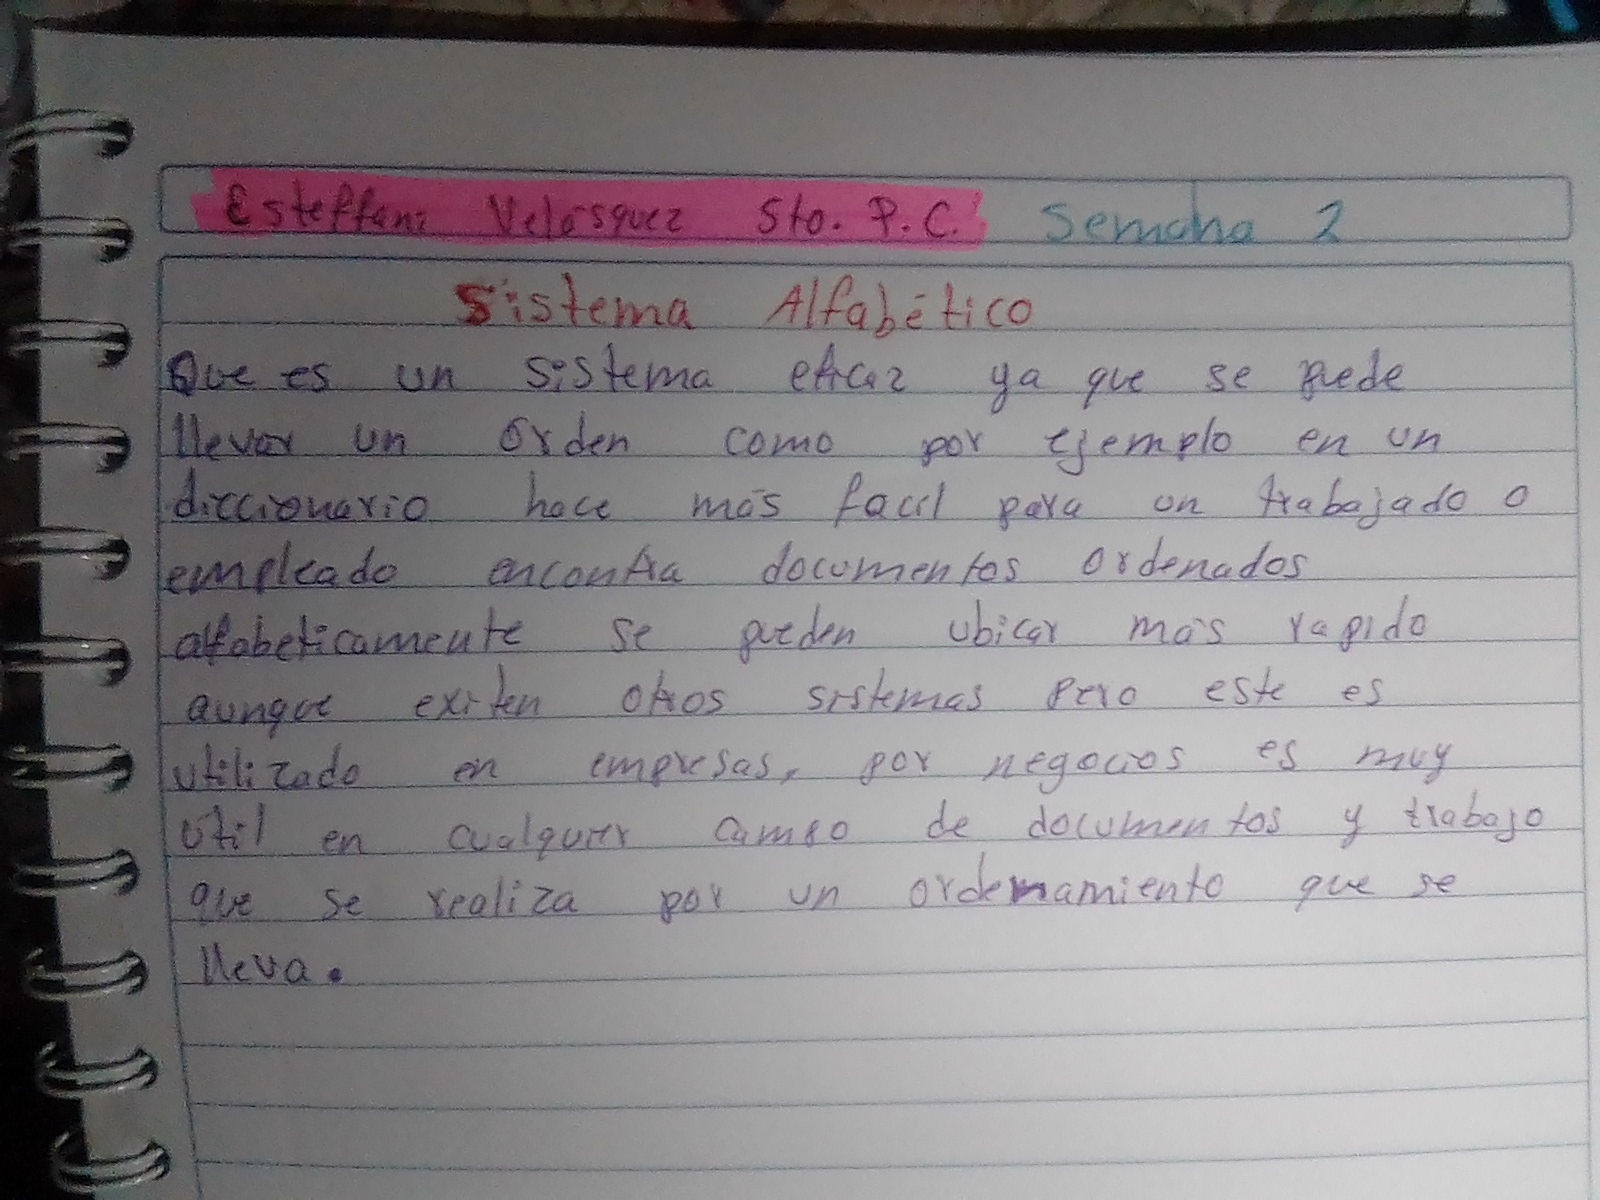 Esteffani Velásquez 5to. P.C. Semana 2
Sistema Alfabético
Que es un sistema eficaz ya que se puede
llevar un órden como por ejemplo en un
diccionario hace más facil para un trabajado o
empleado encontra documentos ordenados
alfabeticamente se pueden ubicar más rapido
aunque exiten otros sistemas pero este es
utilizado en empresas, por negocios es muy
útil en cualquier campo de documentos y trabajo
que se realiza por un ordenamiento que se
lleva.